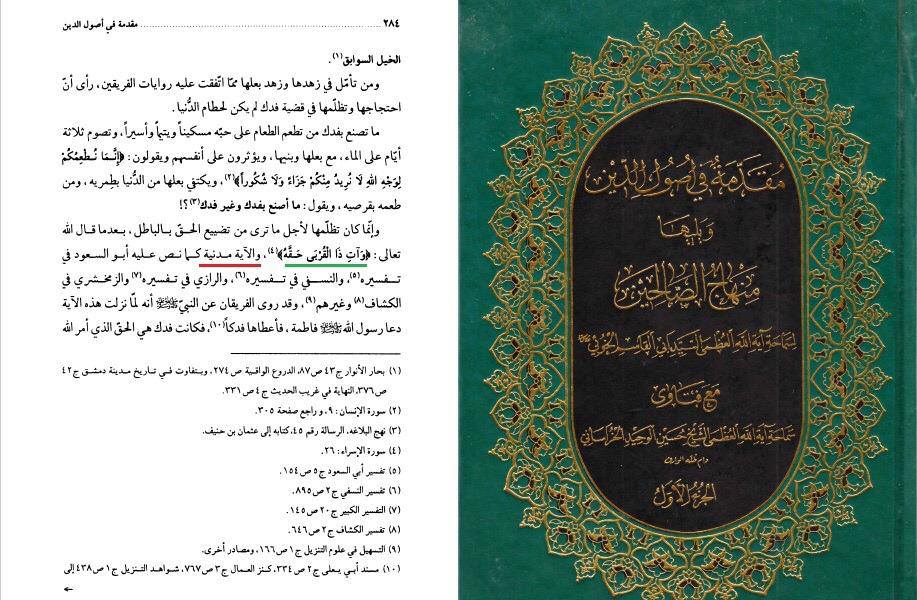 ٢٨٤ ........ مقدمة في أصول الدين
الخيل السوابق(١).
ومن تأمّل في زهدها وزهد بعلها ممّا اتّفقت عليه روايات الفريقين، رأى أنّ
احتجاجها وتظلّمها في قضية فدك لم يكن لحطام الدُّنيا.
ما تصنع بفدك من تطعم الطعام على حبّه مسكيناً ويتيماً وأسيراً، وتصوم ثلاثة
أيّام على الماء، مع بعلها وبنيها، ويؤثرون على أنفسهم ويقولون: ﴿إِنَّمَا نُطْعِمُكُمْ
لِوَجْهِ اللهِ لَا نُرِيدُ مِنْكُمْ جَزَاءً وَلَا شُكُوراً﴾(٢)، ويكتفي بعلها من الدُّنيا بطِمريه، ومن
طعمه بقرصيه، ويقول: ما أصنع بفدك وغير فدك(٣)؟!
وإنّما كان تظلّمها لأجل ما ترى من تضييع الحقّ بالباطل، بعدما قال الله
تعالى: ﴿وَآتِ ذَا الْقُرْبَى حَقَّهُ﴾(٤)، والآية مدنية كما نص عليه أبو السعود في
تفسيره(٥)، والنسفي في تفسيره(٦)، والرازي في تفسيره(٧) والزمخشري في
الكشاف(٨) وغيرهم(٩)، وقد روى الفريقان عن النبيّ ﷺ أنه لمّا نزلت هذه الآية
دعا رسول الله ﷺ فاطمة، فأعطاها فدكاً(١٠)، فكانت فدك هي الحقّ الذي أمر الله
(١) بحار الأنوار ج٤٣ ص٨٧، الدروع الواقية ص٢٧٤، وبتفاوت في تاريخ مدينة دمشق ج٤٢
ص٣٧٦، النهاية في غريب الحديث ج٤ ص٣٣١.
(٢) سورة الإنسان: ٩، و راجع صفحة ٣٠٥.
(٣) نهج البلاغه، الرسالة رقم ٤٥، كتابه إلى عثمان بن حنيف.
(٤) سورة الإسراء: ٢٦.
(٥) تفسير أبي السعود ج٥ ص١٥٤.
(٦) تفسير النسفي ج٢ ص٨٩٥.
(٧) التفسير الكبير ج٢٠ ص١٤٥.
(٨) تفسير الكشاف ج٢ ص٦٤٦.
(٩) التسهيل في علوم التنزيل ج١ ص١٦٦، ومصادر أخرى.
(١٠) مسند أبي يعلى ج٢ ص٣٣٤، كنز العمال ج٣ ص٧٦٧، شواهد التنزيل ج١ ص٤٣٨ إلى
مقدمة في أصول الدين
ويليها
منهاج الصالحين
لسماحة آية الله العظمى السيد أبي القاسم الخوئي
مع فتاوى
سماحة آية الله العظمى الشيخ حسين الوحيد الخراساني
دام ظله الوارف
الجزء الأول